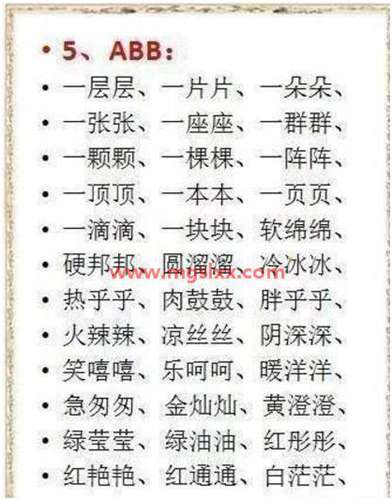 • 5、ABB：
• 一层层、一片片、一朵朵、
• 一张张、一座座、一群群、
• 一颗颗、一棵棵、一阵阵、
• 一顶顶、一本本、一页页、
• 一滴滴、一块块、软绵绵、
• 硬邦邦、圆溜溜、冷冰冰、
www.mgslxx.com
• 热乎乎、肉鼓鼓、胖乎乎、
• 火辣辣、凉丝丝、阴深深、
• 笑嘻嘻、乐呵呵、暖洋洋、
• 急匆匆、金灿灿、黄澄澄、
• 绿莹莹、绿油油、红彤彤、
• 红艳艳、红通通、白茫茫、